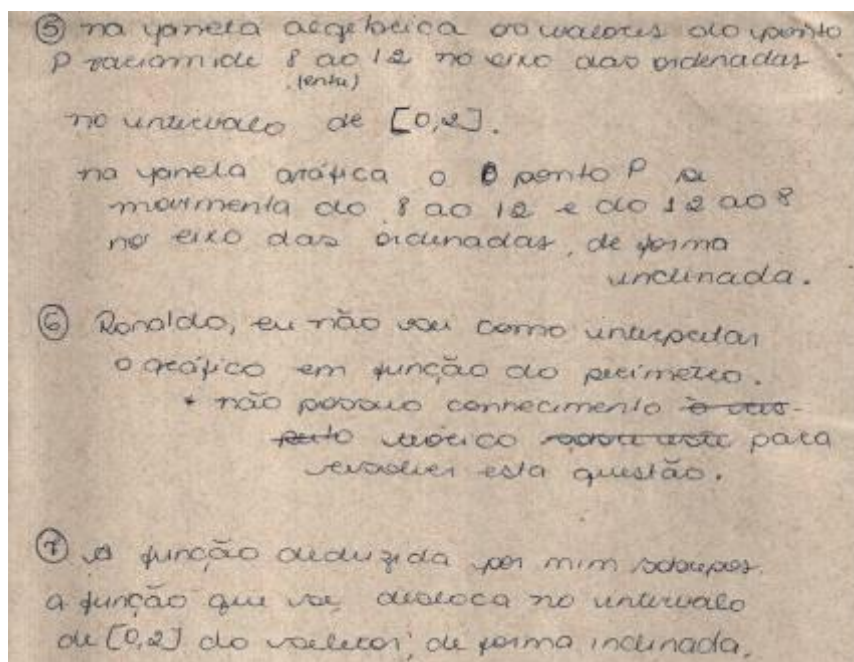 ⑤ na janela algébrica os valores do ponto
P variam de 8 ao 12 no eixo das ordenadas
(entre)
no intervalo de [0,2].
na janela gráfica o ponto P se
movimenta do 8 ao 12 e do 12 ao 8
no eixo das ordenadas, de forma
inclinada.
⑥ Ronaldo, eu não sei como interpretar
o gráfico em função do perímetro.
* não possuo conhecimento
teórico para
resolver esta questão.
⑦ A função deduzida por mim sobrepos
a função que se desloca no intervalo
de [0,2] do seletor, de forma inclinada.